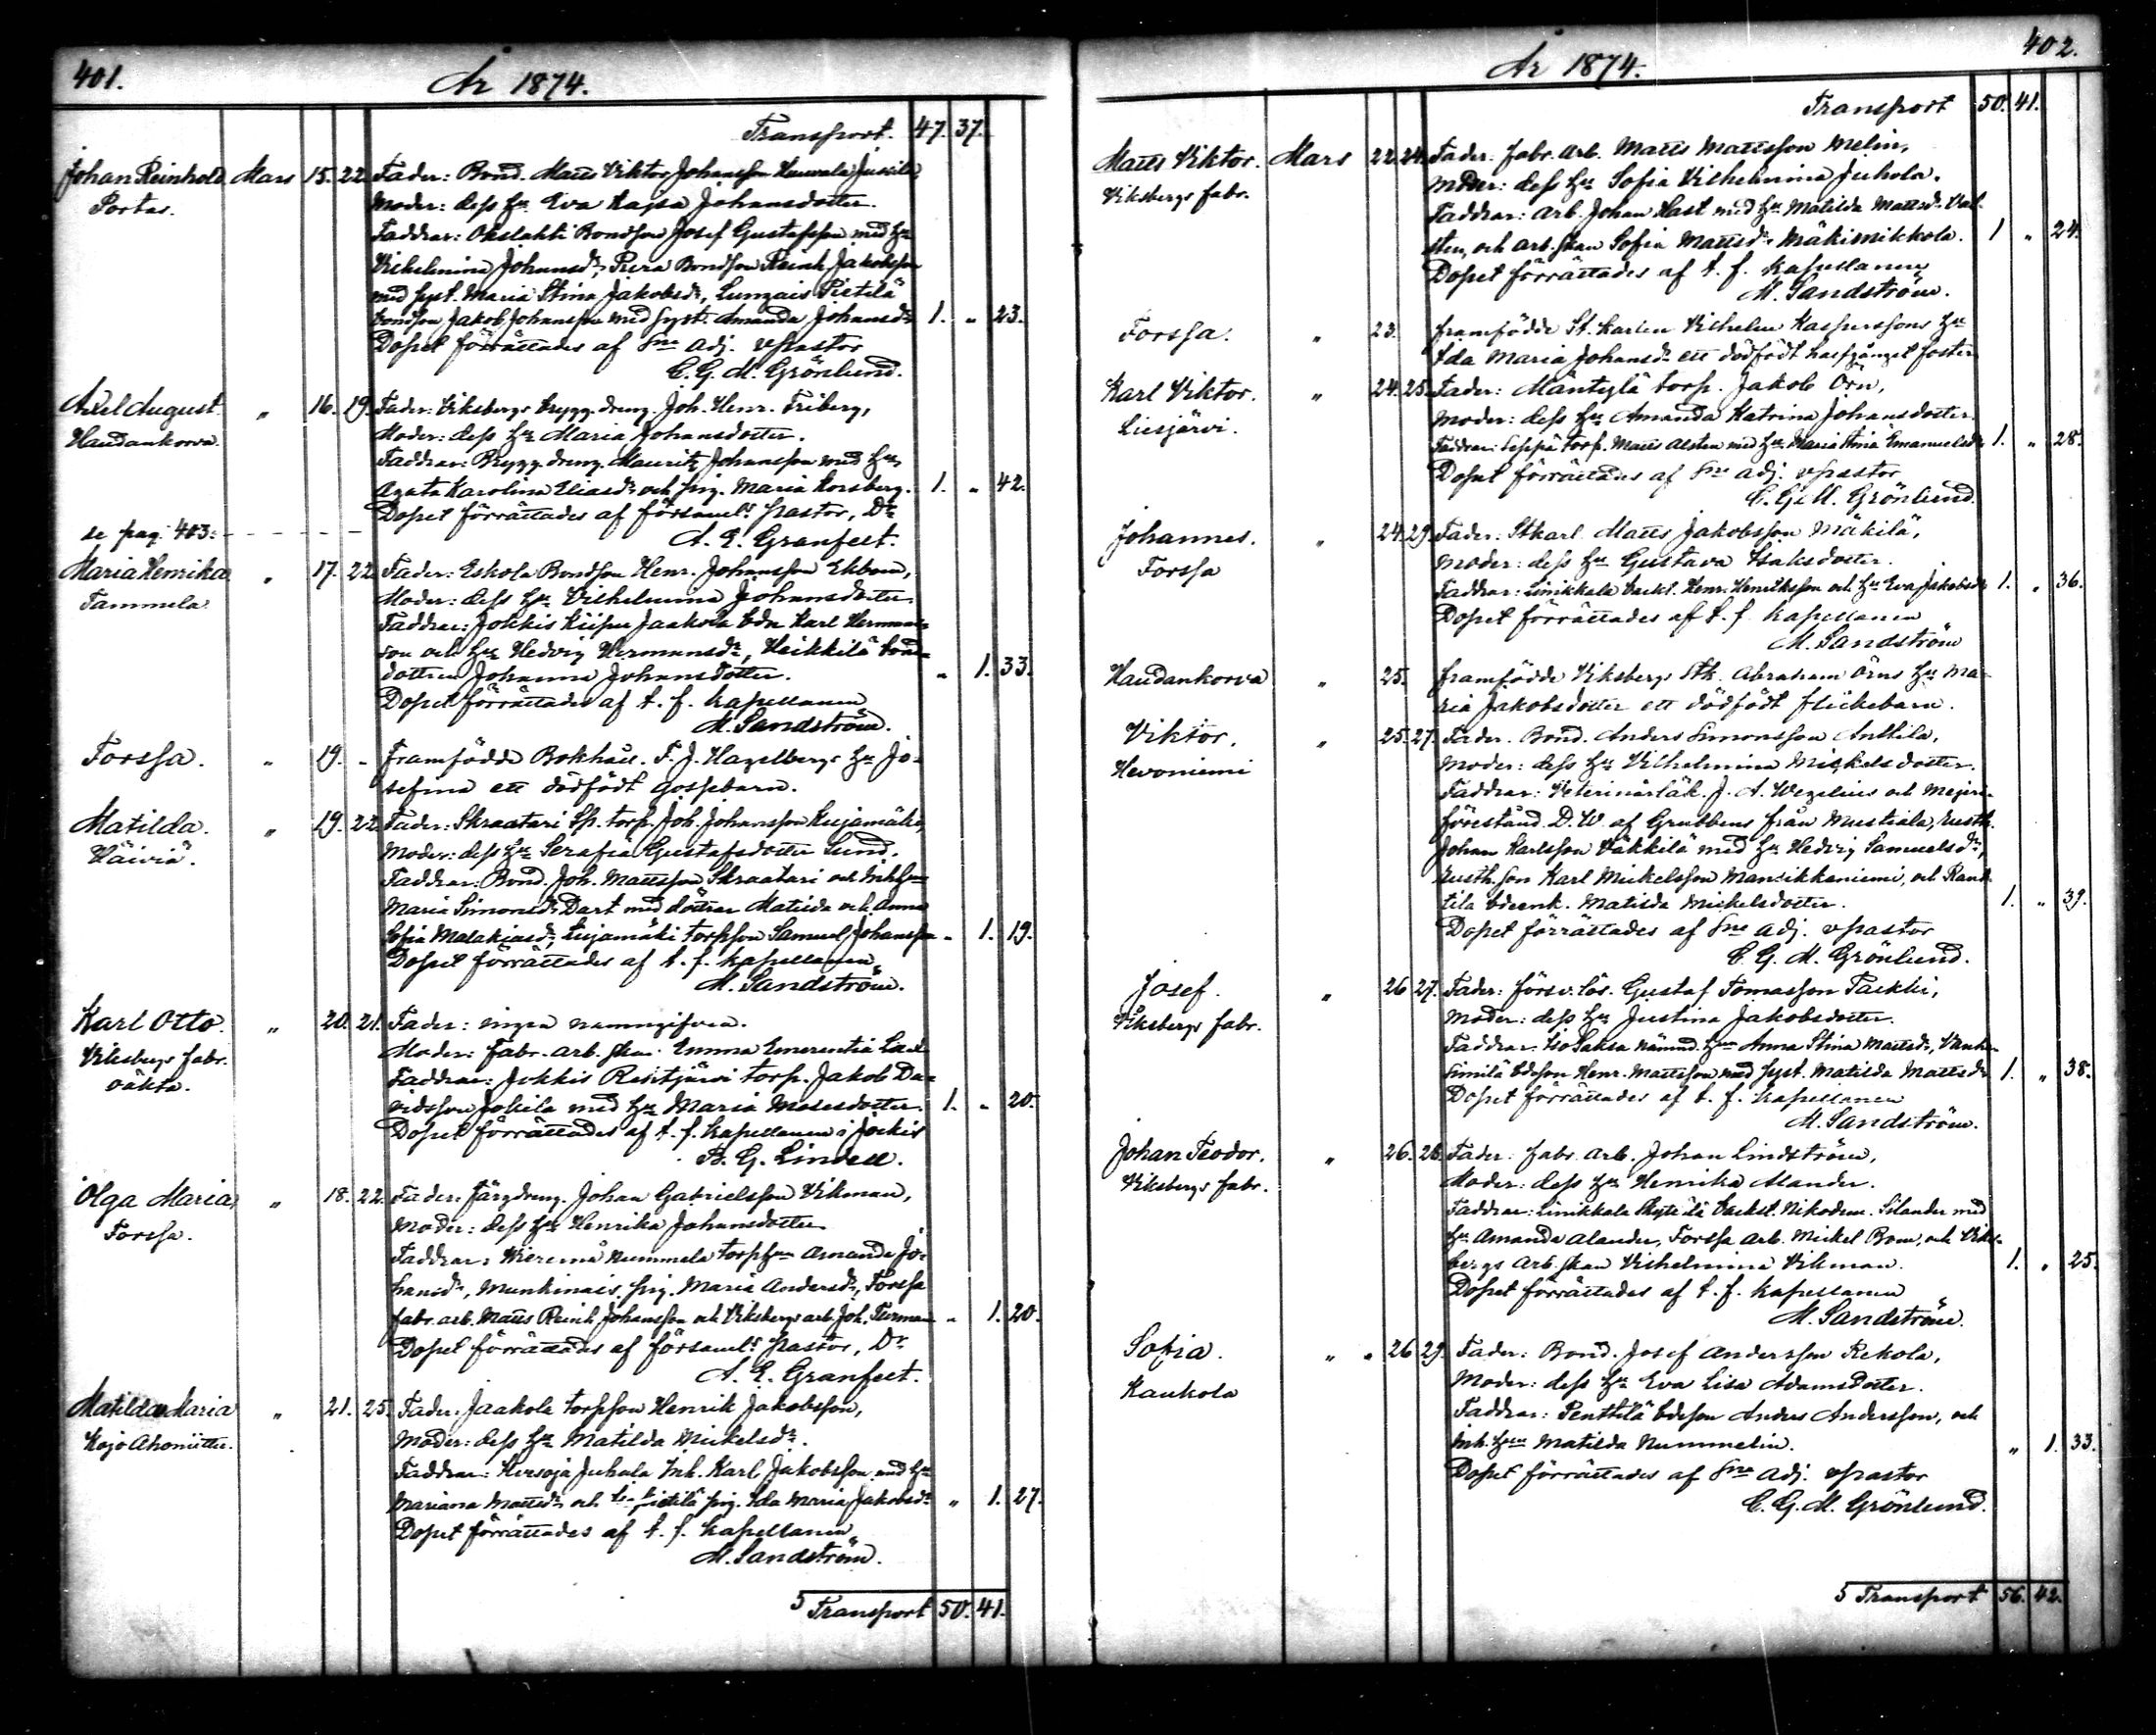 401.
År 1874.
Transport. 47. 37.
Johan Reinhold Mars 15. 22. Fader: Bond. Matts Viktor Johansson Jussila,
Portas. Moder: dess hu Eva Kajsa Johansdotter.
Faddrar: Bondson Josef Gustafsson med hu
Vilhelmina Johansdr, Bondson Reinh. Jakobsson
med syst. Maria Stina Jakobsdr, Lunzais Pietilä
bondson Jakob Johansson med syst. Amanda Johansdr 1. " 23.
Dopet förrättades af Sne Adj. vpastor
C. G. M. Grönlund.
Axel August " 16. 19. Fader: Viksbergs brygg.dreng. Joh. Henr. Friberg,
Haudankorva. Moder: dess hu Maria Johansdotter.
Faddrar: Brygg.dreng. Mauritz Johansson med hu
Agata Karolina Eliasdr och pig. Maria Korsberg. 1. " 42.
Dopet förrättades af församls pastor, Dr
se pag. 403:
A. E. Granfelt.
Maria Henrika " 17. 22. Fader: Eskola Bondson Henr. Johansson Ekbom,
Tammela Moder: dess hu Vilhelmina Johansdotter
Faddrar: Jokkis Kiipu Jaakola bdn Karl Hermans-
son och hu Hedvig Hermansdr, Heikkilä bond-
dottren Johanna Johansdotter. " 1. 33.
Dopet förrättades af t. f. kapellanen
M. Sandström.
Forssa. " 19. - Framfödde Bokhåll. F. J. Hazelbergs hu Jo-
sefina ett dödfödt gossebarn.
Matilda. " 19. 22. Fader: Skraatari Sp. torp. Joh. Johansson Kujamäki,
Häiviä. Moder: dess hu Serafia Gustafsdotter Lund.
Faddrar: Bond. Joh. Mattsson Skraatari och
Maria Simonsdr Dart med döttrar Matilda och Anna
Sofia Malakiasdr, Kujamäki torpson Samuel Johansson " 1. 19.
Dopet förrättades af t. f. kapellanen
M. Sandström.
Karl Otto. " 20. 21. Fader: ingen namngifven.
Viksbergs fabr. Moder: Fabr. arb. skan Emma Emerentia
väkta. Faddrar: Jokkis Ristjärvi torp. Jakob Da-
vidsson Jokila med hu Maria Mosesdotter. 1. " 20.
Dopet förrättades af t. f. kapellanen i Jockis
B. G. Lindell.
Olga Maria, " 18. 22. Fader: färgdreng. Johan Gabrielsson Vikman,
Forssa. Moder: dess hu Henrika Johansdotter
Faddrar: Nummela torphun Amanda Jo-
hansdr, Munkinais. pig. Maria Andersdr, Forssa
fabr. arb. Matts Reinh. Johansson och Viksbergs arb. Joh. Turman " 1. 20.
Dopet förrättades af församls pastor, Dr
A. E. Granfelt.
Matilda Maria " 21. 25. Fader: Jaakola torpson Henrik Jakobsson,
Kojo Ahoniittu. Moder: dess hu Matilda Mickelsdr.
Faddrar: Juhala Inh. Karl Jakobsson med hu
Mariana Mattsdr och pig. Ida Maria Jakobsdr " 1. 27.
Dopet förrättades af t. f. kapellanen
M. Sandström.
5 Transport 50. 41.
402.
År 1874.
Transport 50. 41.
Matts Viktor. Mars 22. 24. Fader: fabr. arb. Matts Mattsson Melin,
Viksbergs fabr. Moder: dess hu Sofia Vilhelmina Juhola.
Faddrar: Arb. Johan Hast med hu Matilda Mattsdr Val-
sten, och arb. skan Sofia Mattsdr Mäkimikkola. 1 " 24.
Dopet förrättades af t. f. kapellanen
M. Sandström.
Forssa. " 23. framfödde St. karlen Vilhelm Kasperssons hu
Ida Maria Johansdr ett dödfödt halfgånget foster
Karl Viktor. " 24. 25. Fader: Mäntylä torp. Jakob Örn,
Liesjärvi. Moder: dess hu Amanda Katrina Johansdotter.
Faddrar: Seppä torp. Matts Alsten med hu Maria Stina Emanuelsdr 1. " 28.
Dopet förrättades af Sne Adj. vpastor
C. G. M. Grönlund.
Johannes. " 24. 29. Fader: Stkarl. Matts Jakobsson Mäkilä,
Forssa Moder: dess hu Gustava Isaksdotter.
Faddrar: Linikkala backst. Henr. Henriksson och hu Eva Jakobsdr 1. " 36.
Dopet förrättades af t. f. kapellanen
M. Sandström
Haudankorva " 25. framfödde Viksbergs Stk. Abraham Örns hu Ma-
ria Jakobsdotter ett dödfödt flickebarn.
Viktor. " 25. 27. Fader. Bond. Anders Simonsson Anttila,
Hevoniemi Moder: dess hu Vilhelmina Mickelsdotter.
Faddrar: Veterinärläk. J. A. Wezelius och Mejeri-
förestånd. D. W. af Grubbens från Mustiala, Rusth.
Johan Karlsson Väkkilä med hu Hedvig Samuelsdr,
Rusth. son Karl Mickelsson Mansikkaniemi, och Rant-
tila bdeenk. Matilda Mickelsdotter. 1. " 39.
Dopet förrättades af Sne Adj. vpastor
C. G. M. Grönlund.
Josef. " 26 27. Fader: försv. lös. Gustaf Tomasson Tackki,
Viksbergs fabr. Moder: dess hu Justina Jakobsdotter.
Faddrar: Iso Saksa nämnd. hun Anna Stina Mattsdr,
Similä bdeson Henr. Mattsson med syst. Matilda Mattsdr 1. " 38.
Dopet förrättades af t. f. kapellanen
M. Sandström.
Johan Teodor. " 26. 28. Fader: fabr. arb. Johan Lindström,
Viksbergs fabr. Moder: dess hu Henrika Mander.
Faddrar: Linikkala backst. Nikodem. Silander med
hu Amanda Alander, Forssa arb. Mickel Bom, och Viks-
bergs arb. skan Vilhelmina Vikman. 1. " 25.
Dopet förrättades af t. f. kapellanen
M. Sandström.
Sofia. " " 26 29. Fader: Bond. Josef Andersson Rekola,
Kaukola Moder: dess hu Eva Lisa Adamsdotter.
Faddrar: Penttilä bdeson Anders Andersson, och
Inh. hun Matilda Nummelin. " 1. 33.
Dopet förrättades af Sne Adj. vpastor
C. G. M. Grönlund.
5 Transport 56. 42.